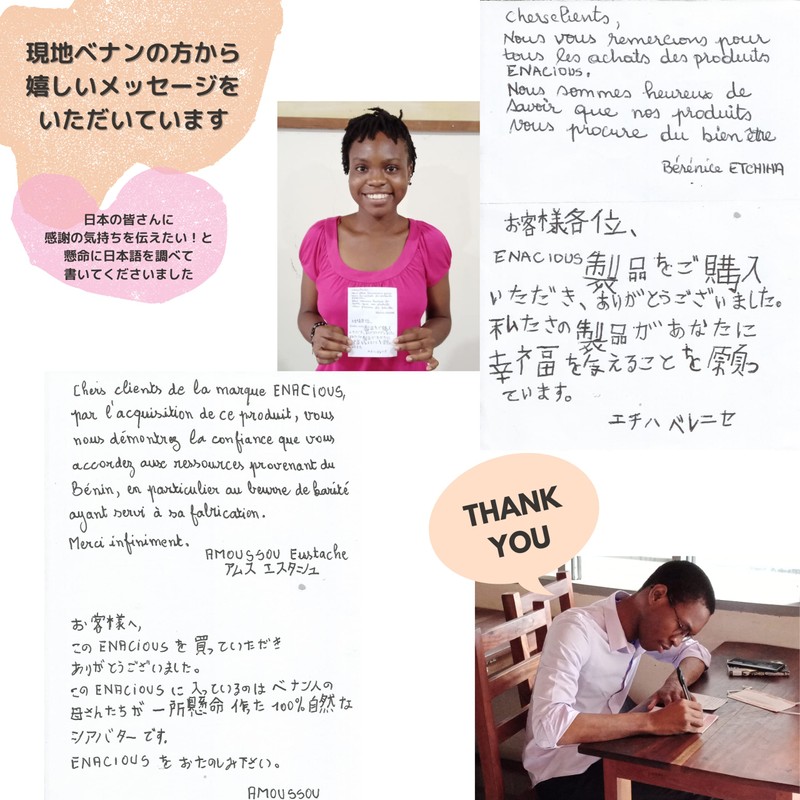 現地ベナンの方から
嬉しいメッセージを
いただいています
日本の皆さんに
感謝の気持ちを伝えたい！と
懸命に日本語を調べて
書いてくださいました
Chers clients,
Nous vous remercions pour
tous les achats des produits
ENACIOUS.
Nous sommes heureux de
savoir que nos produits
vous procure du bien être
Bérénice ETCHIHA
お客様各位、
ENACIOUS製品をご購入
いただき、ありがとうございました。
私たさの製品があなたに
幸福を与えることを願っ
ています。
エチハ ベレニセ
Chers clients de la marque ENACIOUS,
par l'acquisition de ce produit, vous
nous démontrez la confiance que vous
accordez aux ressources provenant du
Bénin, en particulier au beurre de karité
ayant servi à sa fabrication.
Merci infiniment.
AMOUSSOU Eustache
アムス エスタシュ
お客様へ,
この ENACIOUS を 買っていただき
ありがとうございました。
この ENACIOUS に 入っているのは ベナン人の
母さんたちが 一所懸命 作った 100%自然な
シアバター です。
ENACIOUS を おたのしみ下さい。
AMOUSSOU
THANK
YOU